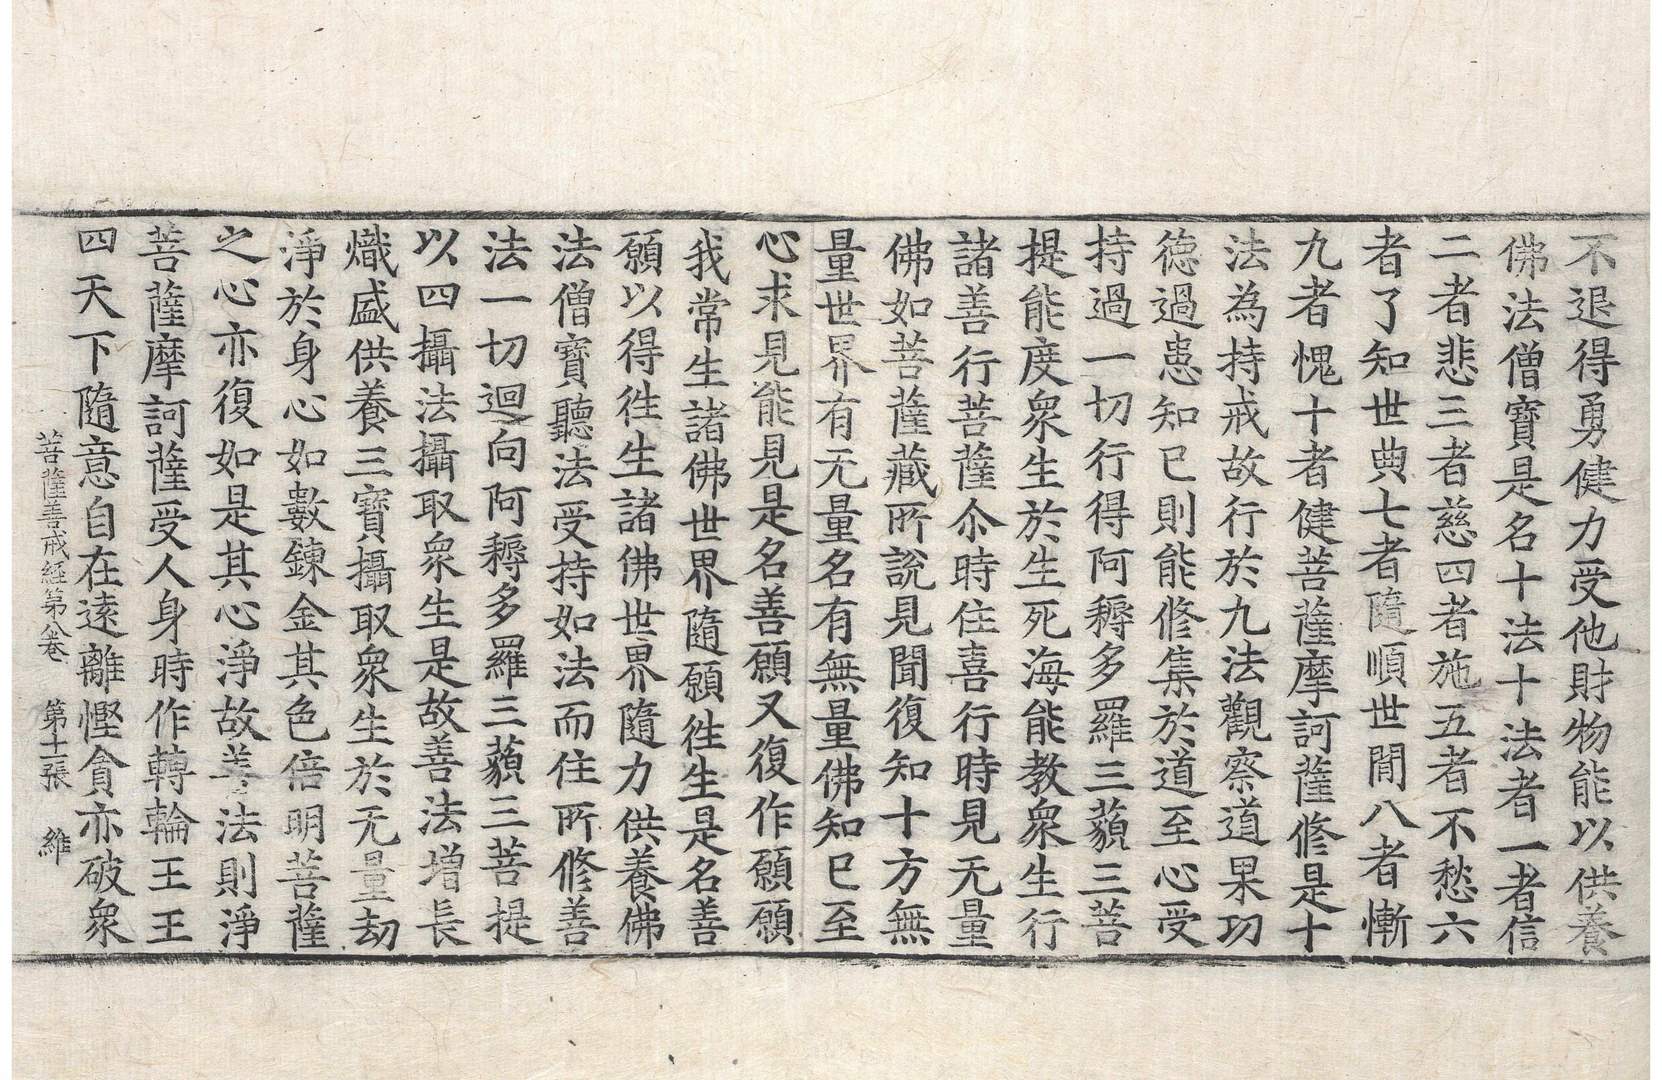 不退得勇健力受他財物能以供養
佛法僧寶是名十法十法者一者信
二者悲三者慈四者施五者不愁六
者了知世典七者隨順世間八者慚
九者愧十者健菩薩摩訶薩修是十
法為持戒故行於九法觀察道果功
德過患知已則能修集於道至心受
持過一切行得阿耨多羅三藐三菩
提能度衆生於生死海能教衆生行
諸善行菩薩尒時住喜行時見无量
佛如菩薩藏所說見聞復知十方無
量世界有无量名有無量佛知已至
心求見能見是名善願又復作願願
我常生諸佛世界隨願徃生是名善
願以得徃生諸佛世界隨力供養佛
法僧寶聽法受持如法而住所修善
法一切迴向阿耨多羅三藐三菩提
以四攝法攝取衆生是故善法增長
熾盛供養三寶攝取衆生於无量劫
淨於身心如數鍊金其色倍明菩薩
之心亦復如是其心淨故善法則淨
菩薩摩訶薩受人身時作轉輪王王
四天下隨意自在遠離慳貪亦破衆
菩薩善戒經第八卷 第十一張 維